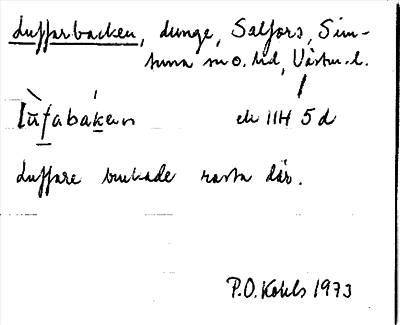 Luffarbacken, dunge, Salfors, Sim-
tuna sn o. hd, Västm. l.
Lùfabákan ek 11H 5d
Luffare brukade rasta där.
P.O. Kohls 1973